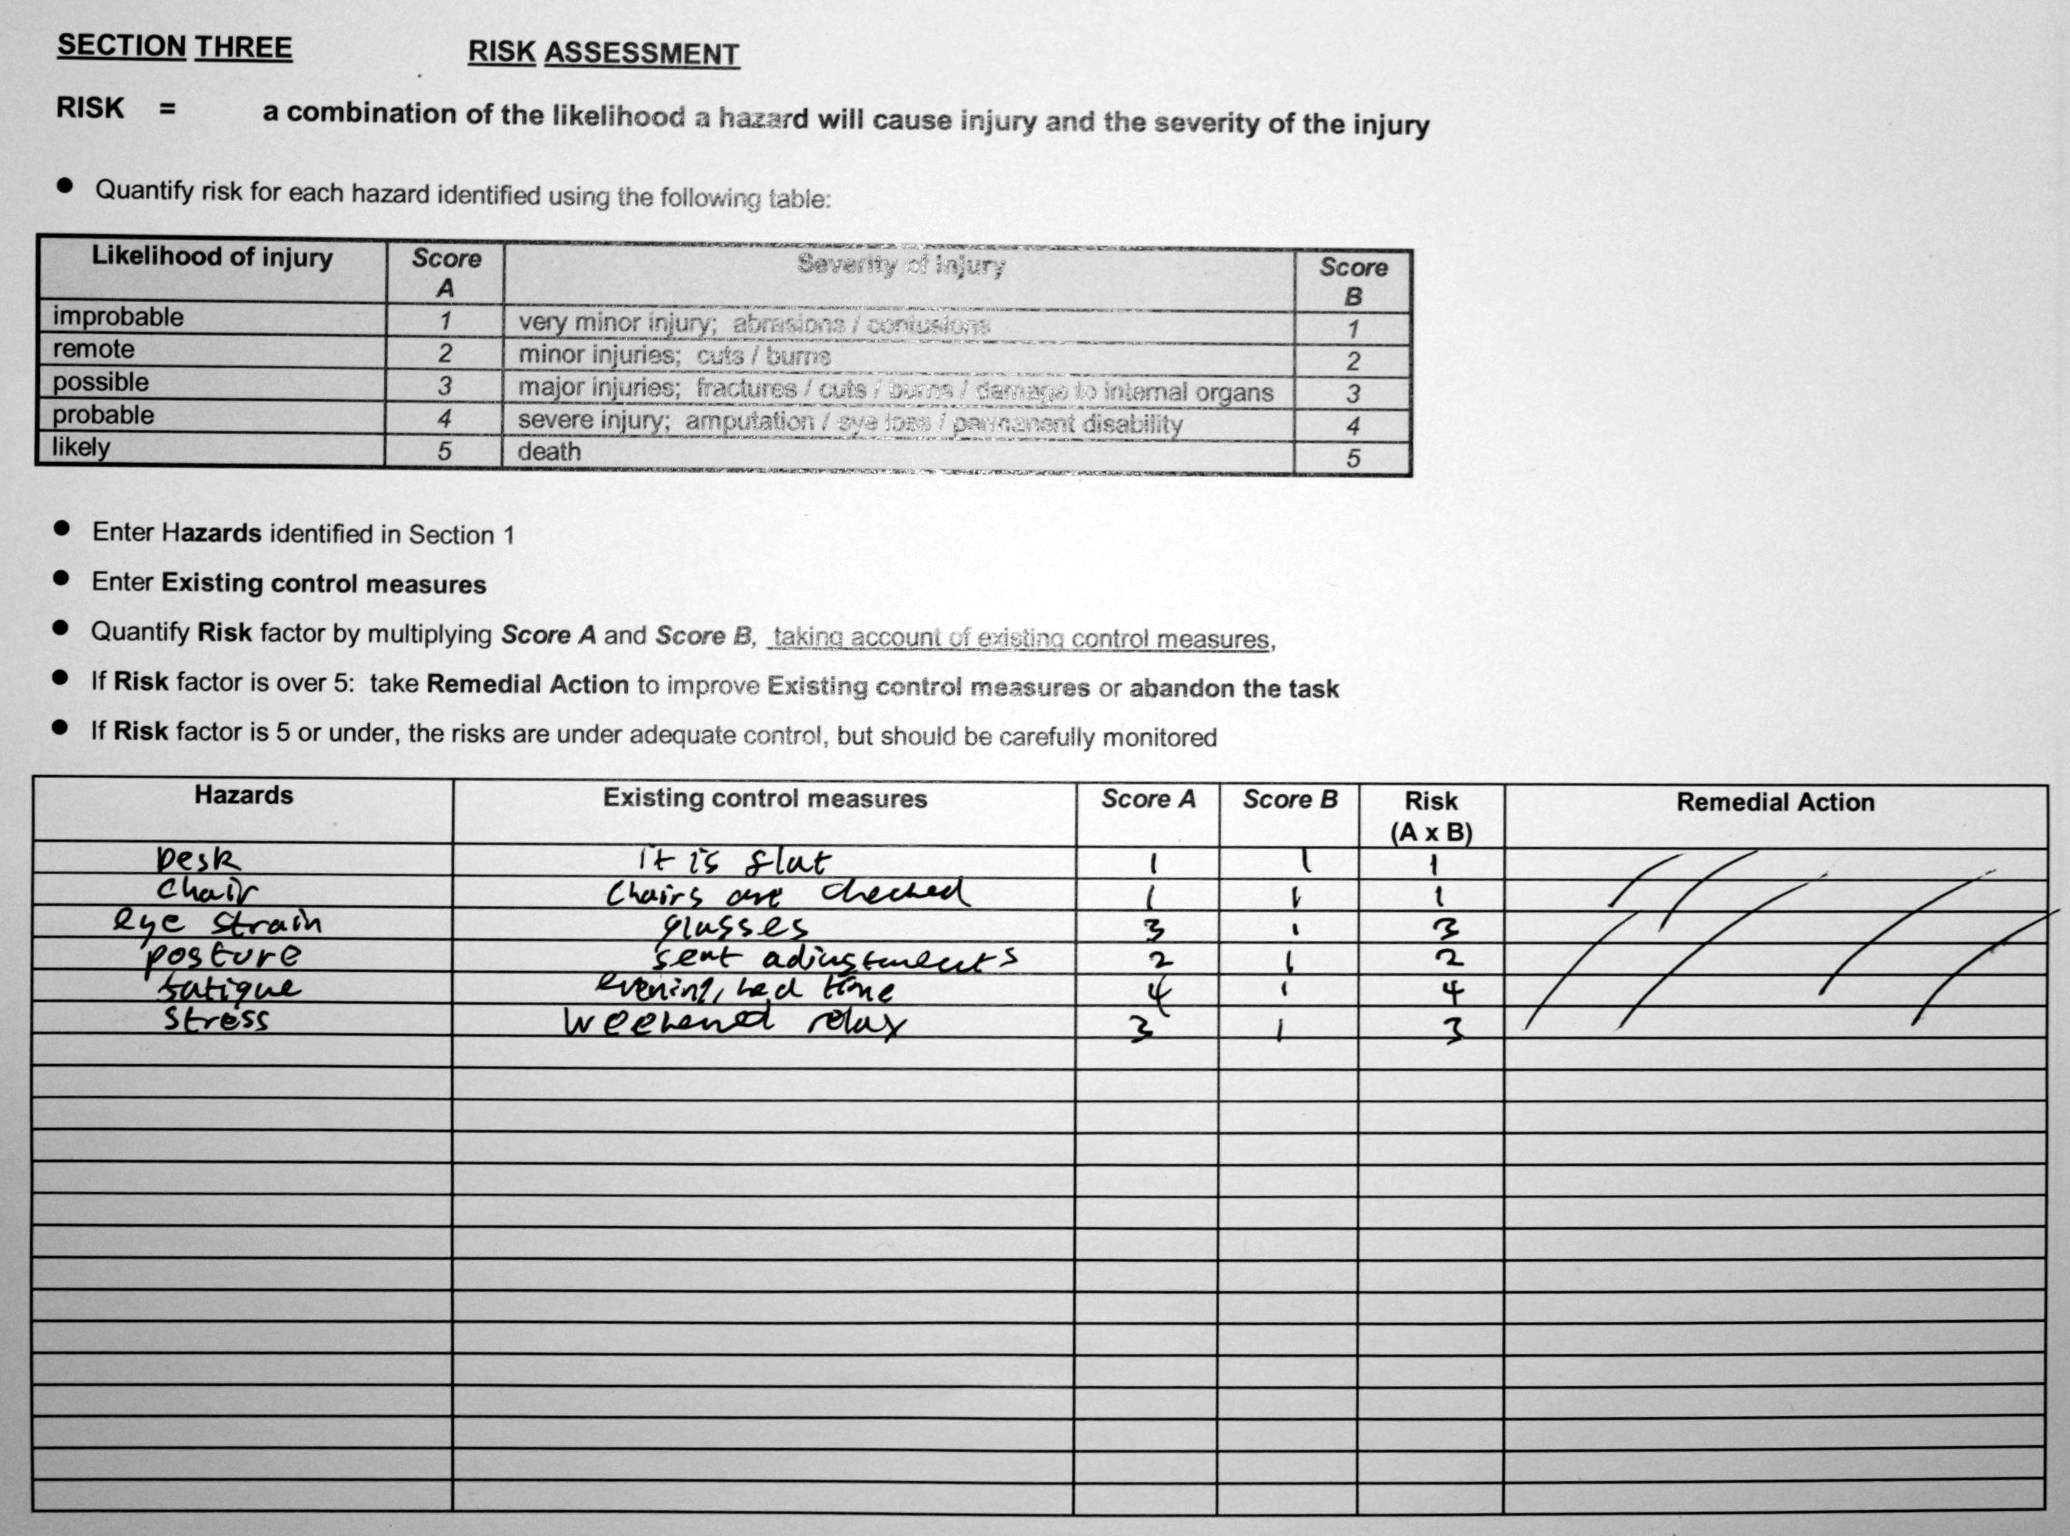 SECTION THREE RISK ASSESSMENT
RISK = a combination of the likelihood a hazard will cause injury and the severity of the injury
● Quantify risk for each hazard identified using the following table:
Likelihood of injury Score A Severity of Injury Score B
improbable 1 very minor injury; abrasions / contusions 1
remote 2 minor injuries; cuts / burns 2
possible 3 major injuries; fractures / cuts / burns / damage to internal organs 3
probable 4 severe injury; amputation / eye loss / permanent disability 4
likely 5 death 5
● Enter Hazards identified in Section 1
● Enter Existing control measures
● Quantify Risk factor by multiplying Score A and Score B, taking account of existing control measures,
● If Risk factor is over 5: take Remedial Action to improve Existing control measures or abandon the task
● If Risk factor is 5 or under, the risks are under adequate control, but should be carefully monitored
Hazards Existing control measures Score A Score B Risk (A x B) Remedial Action
Desk it is flat 1 1 1
Chair Chairs are checked 1 1 1
eye strain glasses 3 1 3
posture seat adjustments 2 1 2
fatigue evening, bed time 4 1 4
Stress Weekened relax 3 1 3